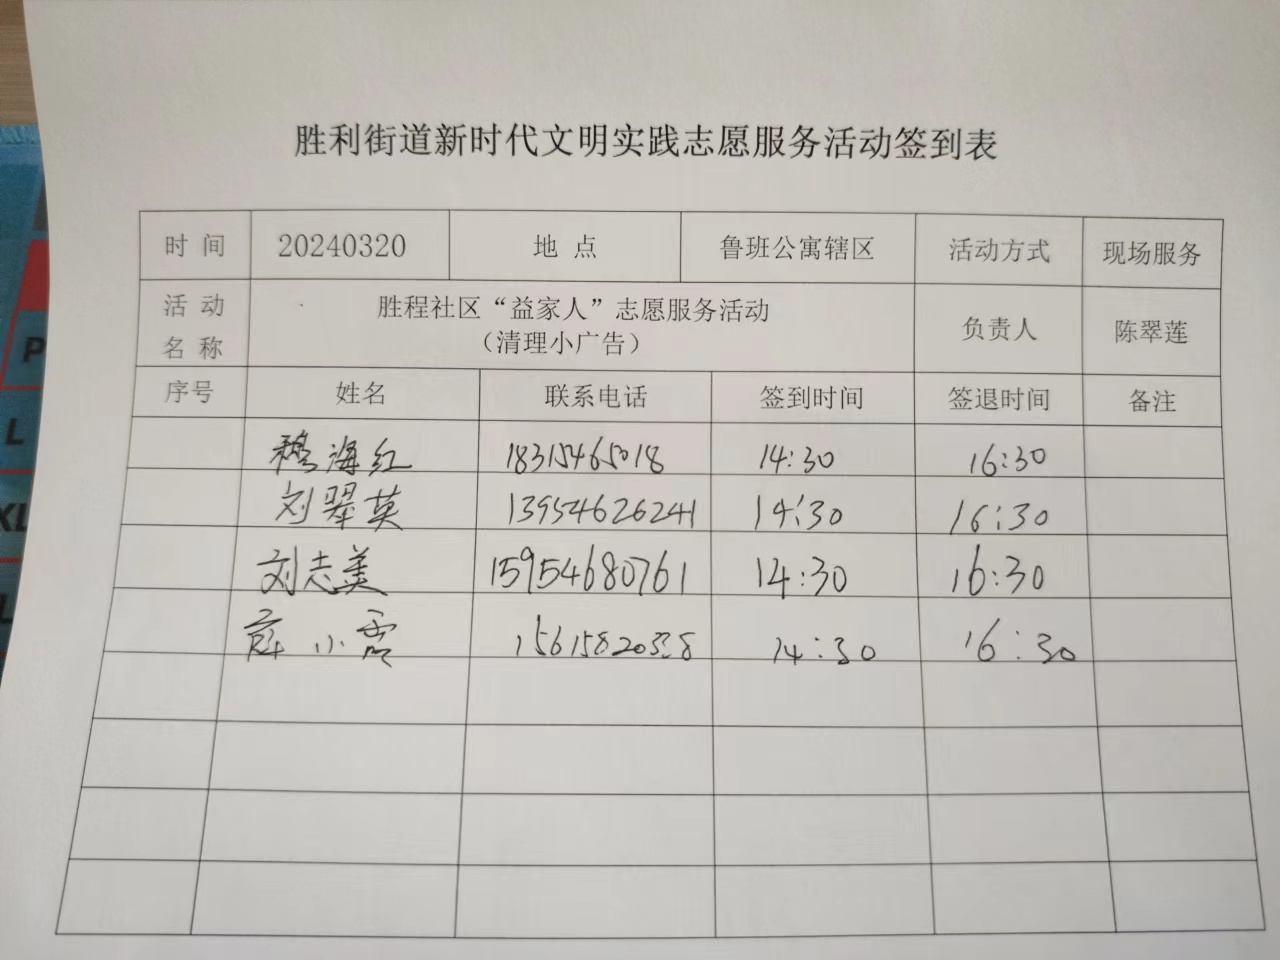 胜利街道新时代文明实践志愿服务活动签到表
时 间 20240320 地 点 鲁班公寓辖区 活动方式 现场服务
活 动 名 称 胜程社区“益家人”志愿服务活动 负责人 陈翠莲
（清理小广告）
序号 姓名 联系电话 签到时间 签退时间 备注
穆海红 18315465018 14:30 16:30
刘翠英 13954626241 14:30 16:30
刘志美 15954680761 14:30 16:30
薛小霞 15615820338 14:30 16:30
P
L
XL